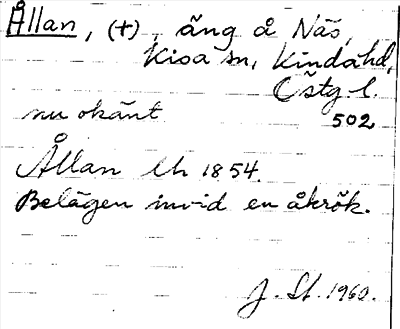 Ållan, (+), äng å Näs,
Kisa sn, Kinda hd,
Östg l.
nu okänt 502
Ållan lh 1854.
Belägen invid en åkrök.
J. St. 1960.